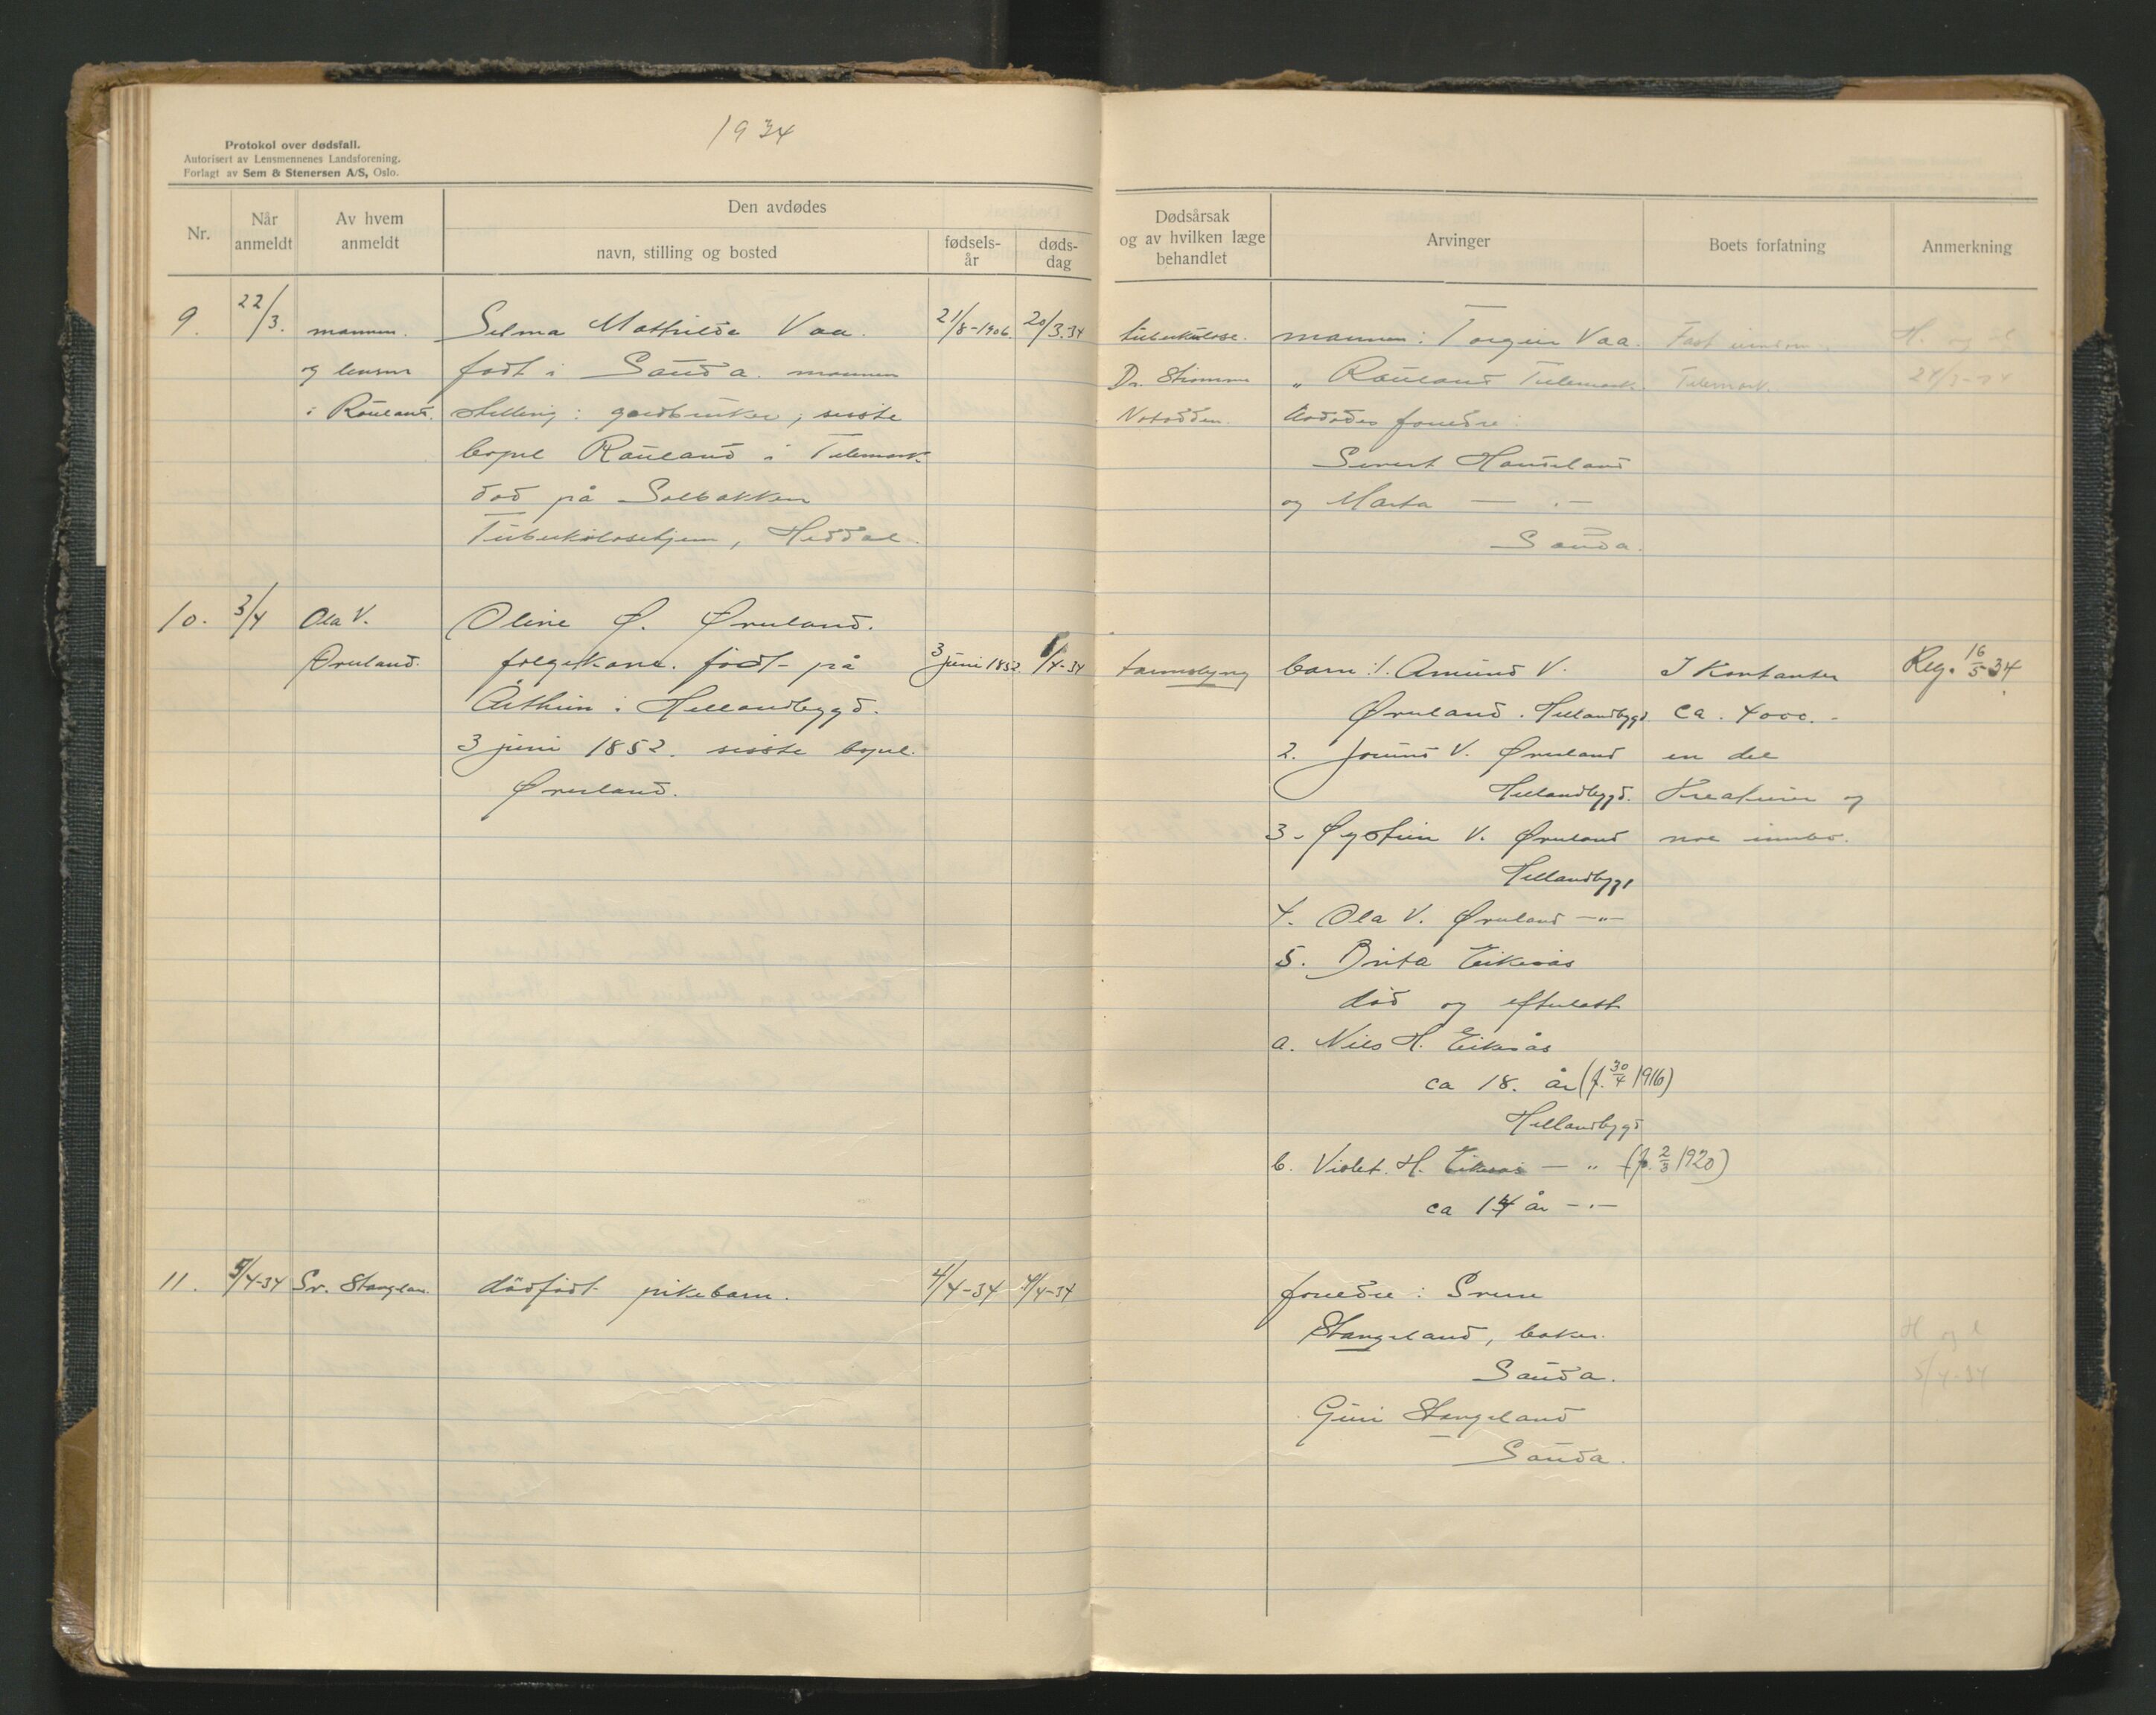 1934
Protokol over dødsfall.
Autorisert av Lensmennenes Landsforening.
Forlagt av Sem & Stenersen A/S, Oslo.
Nr.
Når anmeldt
Av hvem anmeldt
Den avdødes
navn, stilling og bosted
fødsels-år
døds-dag
9. 22/3. mannen. Selma Mathilde Vaa. 21/8-1906. 20/3.34
og lensm født i Sauda. mannens
i Rauland. stilling: gardbruker, siste
bopel Rauland i Telemark
død på Solbakken
Tuberkulosehjem, Heddal.
10. 3/4 Ola V. Oline Ø. Øruland.
Øruland. følgekone. født på 3 juni 1852. /4-34
i Hellandbygd.
3 juni 1852. sisste bopel.
Øruland.
11. 5/4-34 Sv. Stangelan. dødfødt pikebarn. 4/4-34 4/4-34
Dødsårsak og av hvilken læge behandlet
Arvinger
Boets forfatning
Anmerkning
tuberkulose. mannen: Torgeir Vaa. Fast H. og
Dr. Strømme " Rauland Telemark. Telemark. 24/3-34
Notodden. Avdødes foreldre:
Sivert Handeland
og Marta — " —
Sauda.
barn: 1. Amund V. I Kontanter Reg. 16/5-34
Øruland. Hellandbygd ca. 4000.-
2. Jorund V. Øruland en del
Hellandbygd. Kreaturer og
3. Øystein V. Øruland noe innbo.
Hellandbygd
4. Ola V. Øruland —"—
5. Brita Eikeås
død og efterlatt
a. Nils H. Eikeås
ca 18. år (f. 30/4 1916)
Hellandbygd
b. Violet. H. Eikeås — " — (f. 2/3 1920)
ca 14 år —"—
foreldre: Svein
Stangeland, baker.
Sauda.
H og l
5/4-34
Guri Stangeland
Sauda.